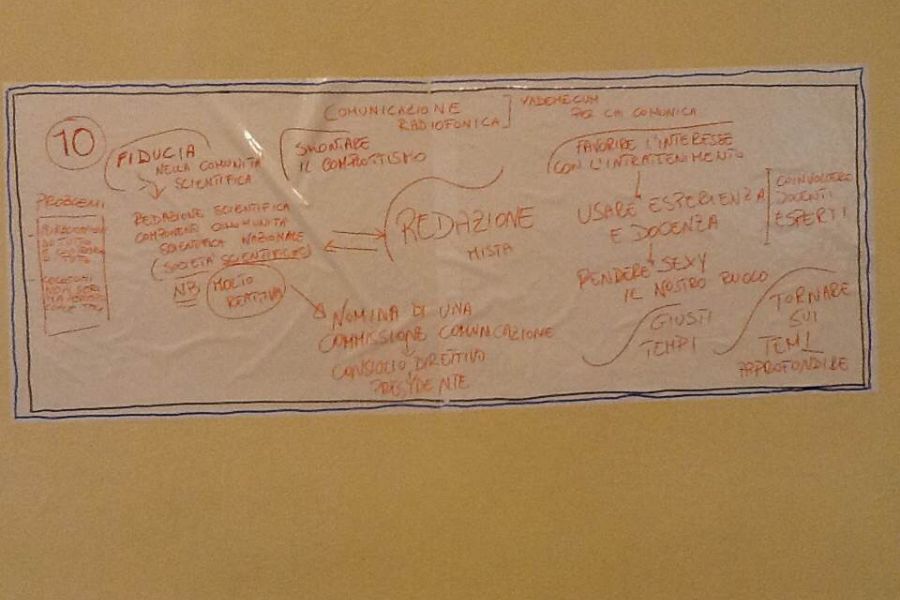 10
COMUNICAZIONE
RADIOFONICA
VADEMECUM
PER CHI COMUNICA
FIDUCIA
NELLA COMUNITÀ
SCIENTIFICA
SMONTARE
IL COMPLOTTISMO
FAVORIRE L'INTERESSE
CON L'INTRATTENIMENTO
PROBLEMI
TUTTO
REDAZIONE SCIENTIFICA
COMPONENTI COMUNITÀ
SCIENTIFICA NAZIONALE
(SOCIETÀ SCIENTIFICHE)
NB MOLTO
REATTIVA
REDAZIONE
MISTA
NOMINA DI UNA
COMMISSIONE COMUNICAZIONE
CONSIGLIO DIRETTIVO
PRESIDENTE
USARE ESPERIENZA
E DOCENZA
COINVOLGERE
DOCENTI
ESPERTI
RENDERE SEXY
IL NOSTRO RUOLO
GIUSTI
TEMPI
TORNARE
SUI
TEMI
APPROFONDIRE